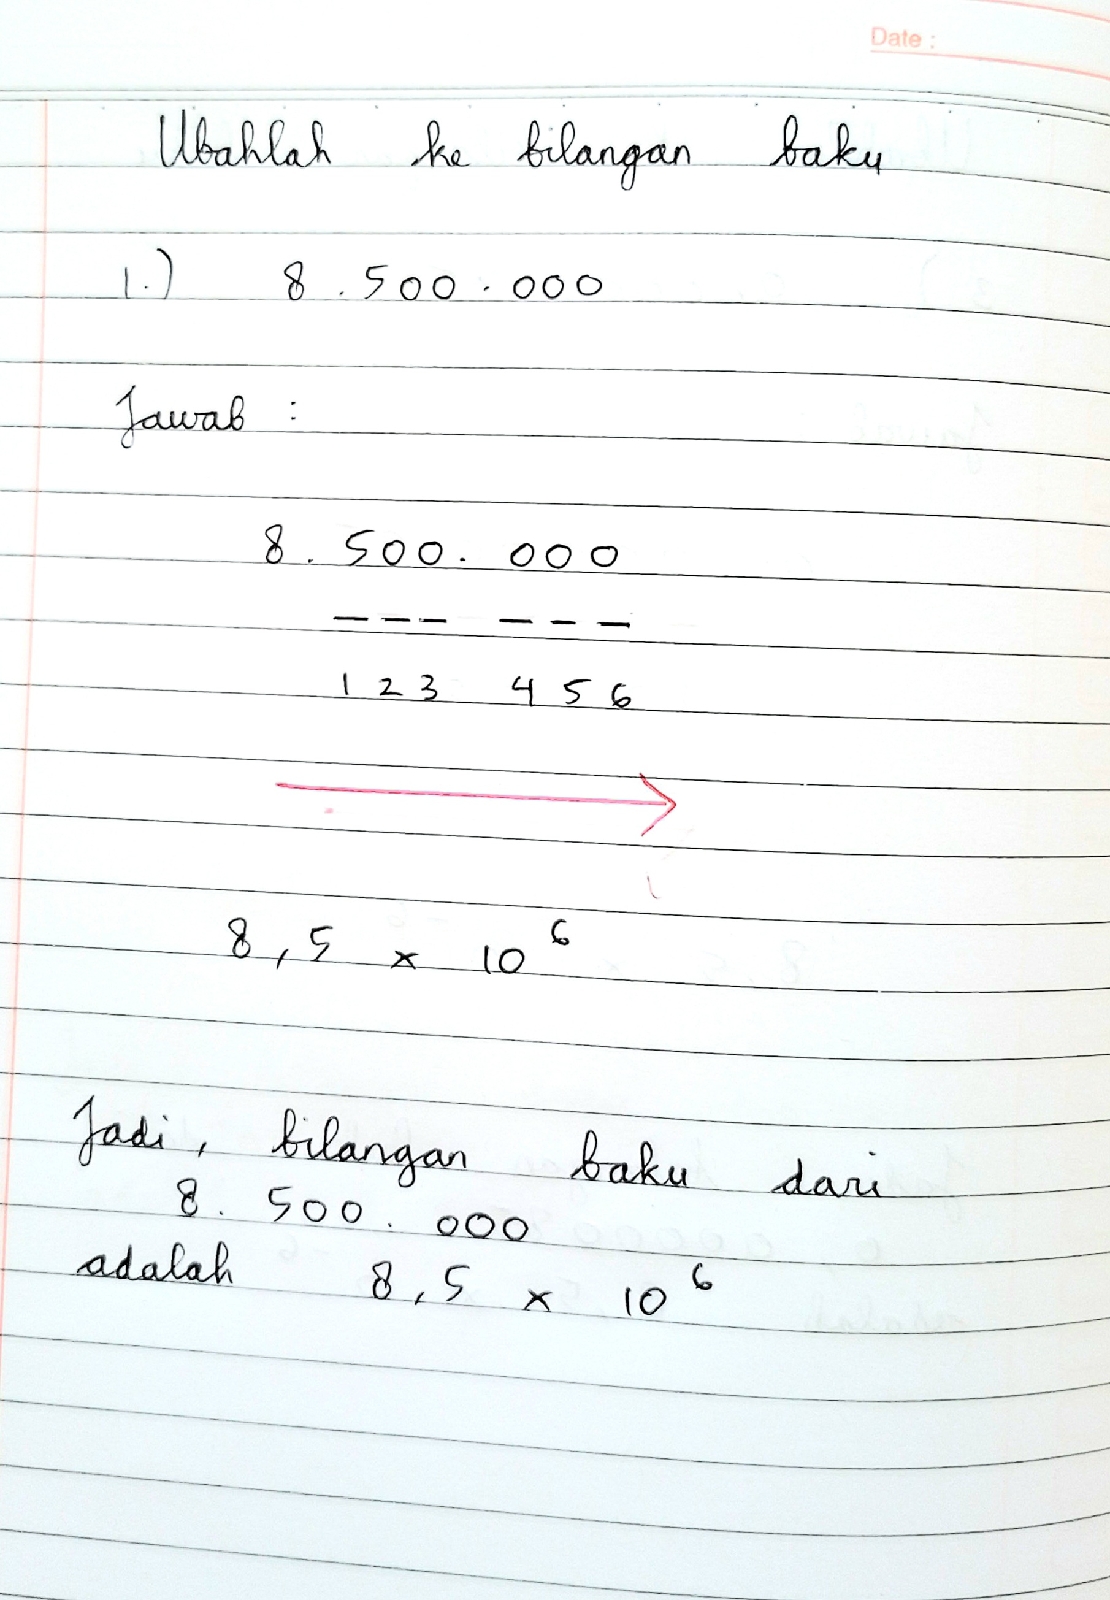 Date :
Ubahlah ke bilangan baku
1.) 8.500.000
Jawab :
8.500.000
1 2 3 4 5 6
8,5 × 10⁶
Jadi, bilangan baku dari
8.500.000
adalah 8,5 × 10⁶